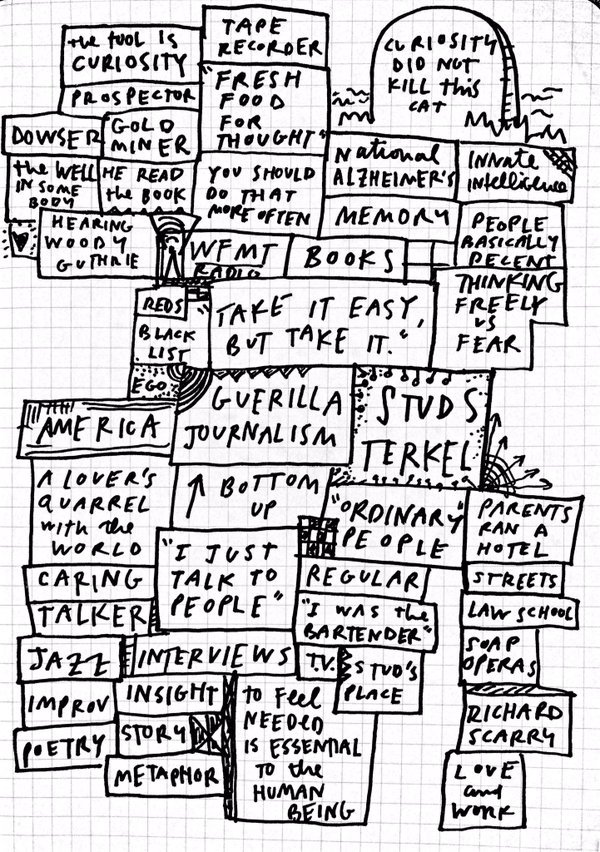 the tool is
CURIOSITY
TAPE
RECORDER
CURIOSITY
DID NOT
KILL this
CAT
PROSPECTOR
"FRESH
FOOD
FOR
THOUGHT"
DOWSER
GOLD
MINER
the WELL
IN SOME
BODY
HE READ
the BOOK
YOU SHOULD
DO THAT
MORE OFTEN
NATIONAL
ALZHEIMER'S
INNATE
intelligence
MEMORY
PEOPLE
BASICALLY
DECENT
HEARING
WOODY
GUTHRIE
WFMT
RADIO
BOOKS
THINKING
FREELY
vs
FEAR
REDS
BLACK
LIST
"TAKE IT EASY,
BUT TAKE IT."
EGO
GUERILLA
JOURNALISM
STUDS
TERKEL
AMERICA
A LOVER'S
QUARREL
with the
WORLD
BOTTOM
UP
"ORDINARY"
PEOPLE
PARENTS
RAN A
HOTEL
"I JUST
TALK TO
PEOPLE"
CARING
TALKER
REGULAR
STREETS
"I WAS the
BARTENDER"
LAW SCHOOL
JAZZ
INTERVIEWS
T.V.
STUD'S
PLACE
SOAP
OPERAS
IMPROV
INSIGHT
to feel
NEEDED
IS ESSENTIAL
TO the
HUMAN
BEING
RICHARD
SCARRY
POETRY
STORY
METAPHOR
LOVE
and
WORK